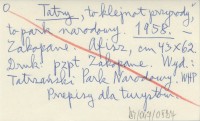 Tatry, „to klejnot przyrody",
to park narodowy. 1958. -
Zakopane. Afisz, cm 45x62
Druk: pzpt. Zakopane. Wyd:
Tatrzański Park Narodowy. WHP
Przepisy dla turystów